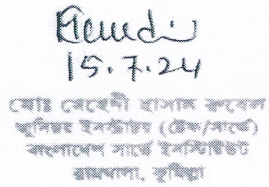 15.7.24
মোঃ মেহেদী হাসান রুবেল
জুনিয়র ইনস্ট্রাক্টর (টেক/সার্ভে)
বাংলাদেশ সার্ভে ইনস্টিটিউট
রামমালা, কুমিল্লা